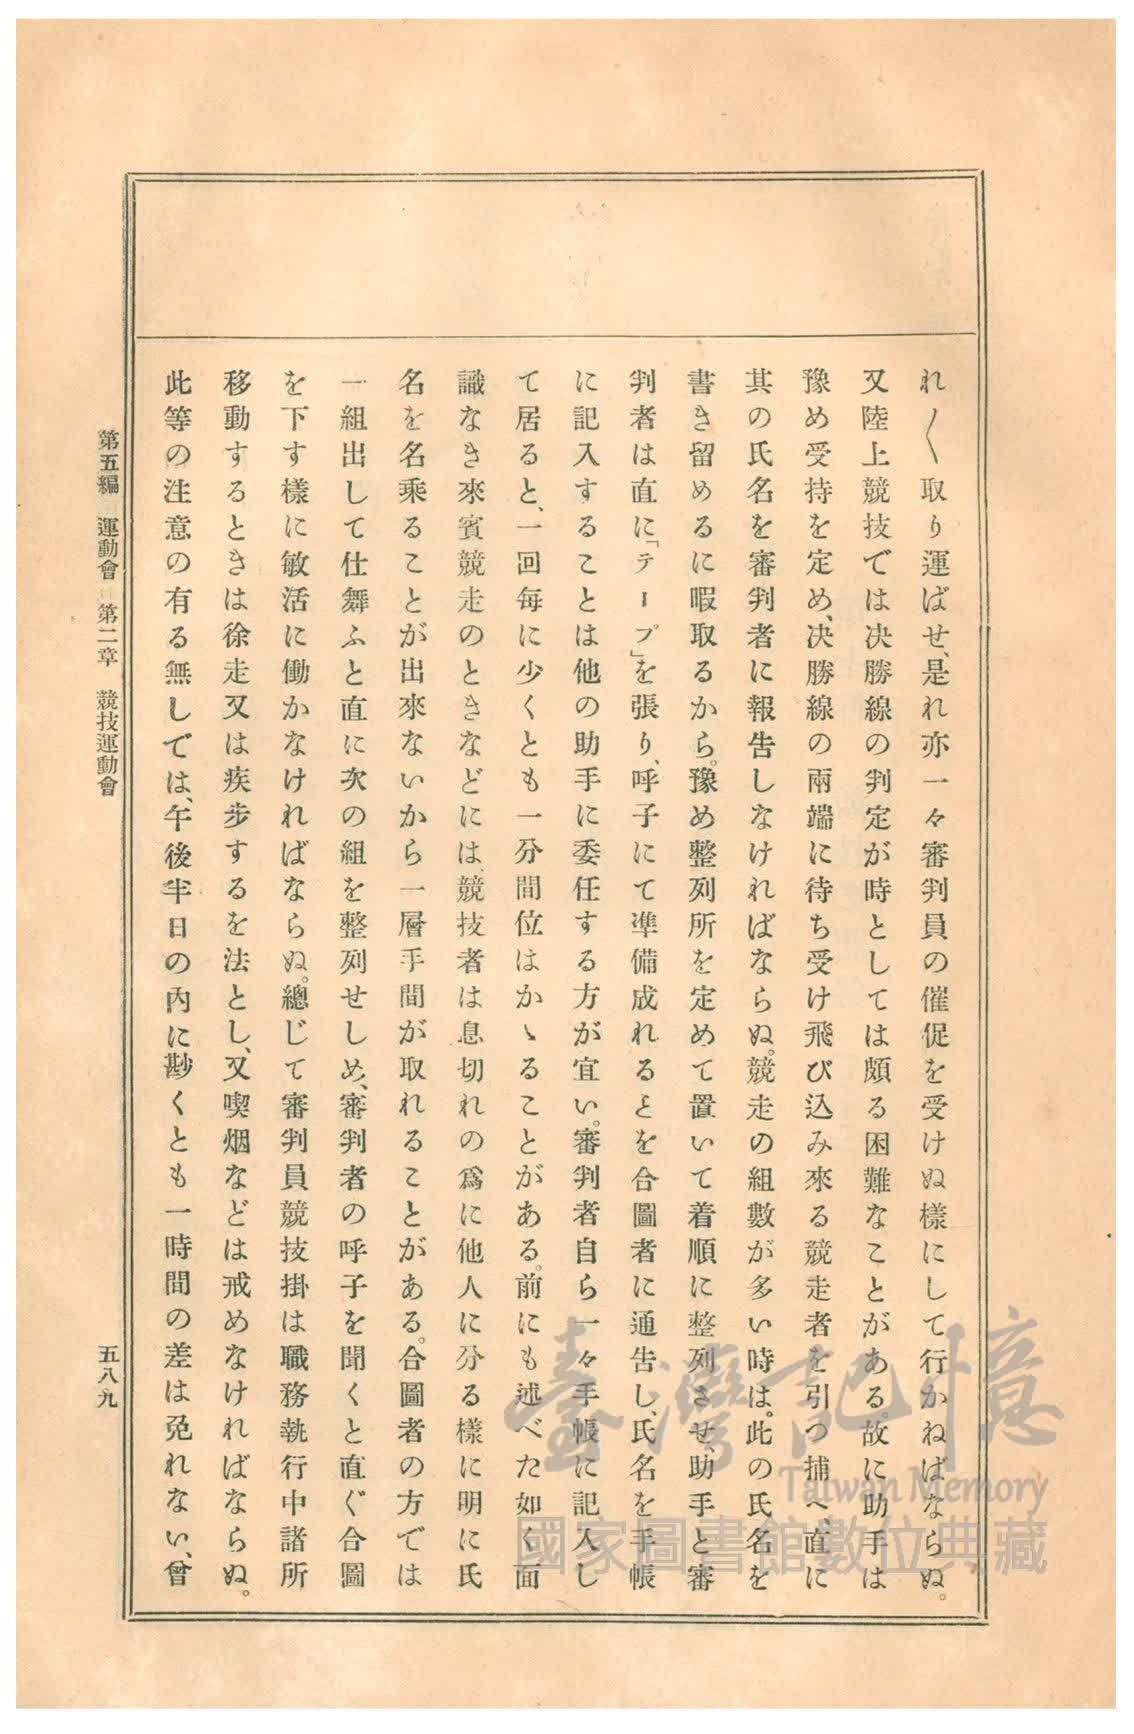 れ〳〵取り運ばせ、是れ亦一々審判員の催促を受けぬ樣にして行かねばならぬ。
又陸上競技では決勝線の判定が時としては頗る困難なことがある。故に助手は
豫め受持を定め、決勝線の兩端に待ち受け飛び込み來る競走者を引つ捕へ、直に
其の氏名を審判者に報吿しなければならぬ。競走の組數が多い時は。此の氏名を
書き留めるに暇取るから。豫め整列所を定めて置いて着順に整列させ、助手と審
判者は直に「テープ」を張り、呼子にて準備成れるとを合圖者に通吿し、氏名を手帳
に記入することは他の助手に委任する方が宜い。審判者自ら一々手帳に記入し
て居ると、一回每に少くとも一分間位はかゝることがある。前にも述べた如く面
識なき來賓競走のときなどには、競技者は息切れの爲に他人に分る樣に明に氏
名を名乘ることが出來ないから一層手間が取れることがある。合圖者の方では
一組出して仕舞ふと直に次の組を整列せしめ、審判者の呼子を聞くと直ぐ合圖
を下す樣に敏活に働かなければならぬ。總じて審判員競技掛は職務執行中諸所
移動するときは徐走又は疾步するを法とし、又喫烟などは戒めなければならぬ。
此等の注意の有る無しでは、午後半日の內に尠くとも一時間の差は免れない、曾
第五編 運動會 第二章 競技運動會
五八九
臺灣記憶
Taiwan Memory
國家圖書館數位典藏